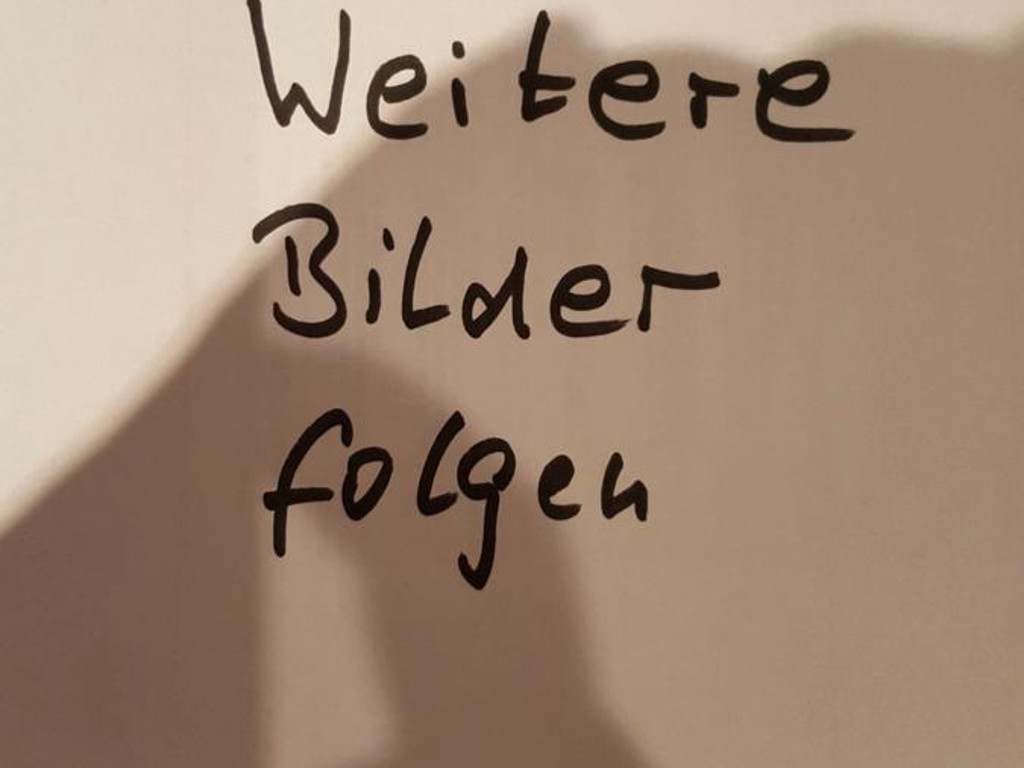 Weitere
Bilder
folgen